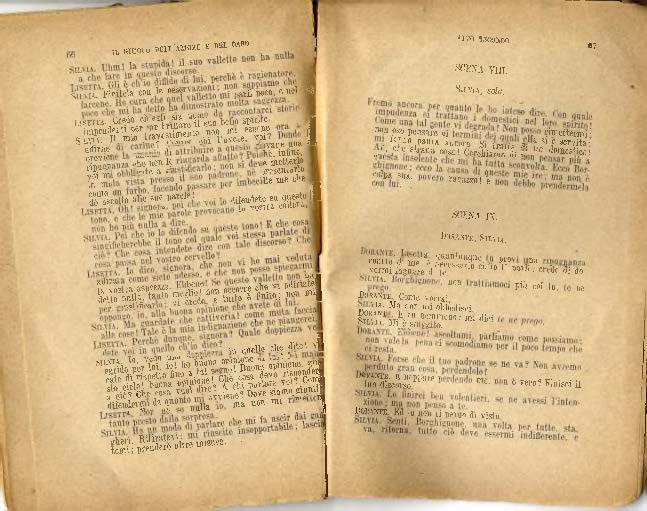 66 IL GIUOCO DELL'AMORE E DEL CASO
SILVIA. Uhm! la stupida! il suo valletto non ha nulla
a che fare in questo discorso.
LISETTA. Gli è ch'io diffido di lui, perchè è ragionatore.
SILVIA. Finitela con le osservazioni; non sappiamo che
farcene. Ho cura che quel valletto mi parli poco, e nel
poco che mi ha detto ha dimostrato molta saggezza.
LISETTA. Credo ch'egli sia uomo da raccontarvi storie
impudenti per far brillare il suo bello spirito.
SILVIA. Il mio travestimento non mi espone ora a
sentire di carine? che avete voi? Donde
proviene la smania di attribuire a questo giovane una
ripugnanza che non lo riguarda affatto? Perchè, infine,
voi mi obbligate a giustificarlo; non si deve metterlo
in mala vista presso il suo padrone, nè presentarlo
come un furbo, facendo passare per imbecille me che
do ascolto alle sue parole!
LISETTA. Oh! signora, poi che voi lo difendete su questo
tono, e che le mie parole provocano la vostra collera,
non ho più nulla a dire.
SILVIA. Poi che io lo difendo su questo tono! E che cosa
significherebbe il tono col quale voi stessa parlate di
ciò? Che cosa intendete dire con tale discorso? Che
cosa passa nel vostro cervello?
LISETTA. Io dico, signora, che non vi ho mai veduta
come siete adesso, e che non posso spiegarmi
la vostra asprezza. Ebbene! Se questo valletto non ha
detto nulla, tanto meglio; non occorre che vi adiriate
per giustificarlo; vi credo, e tutto è finito; non mi
oppongo, io, alla buona opinione che avete di lui.
SILVIA. Ma guardate che cattiveria! come muta faccia
alle cose! Tale è la mia indignazione che ne piangerei.
LISETTA. Perchè dunque, signora? Quale doppiezza ve-
dete voi in quello ch'io dico?
SILVIA. Io, vedo una doppiezza in quello che dite!
per lui! io! ho buona opinione di lui! Mi man-
cate di rispetto fino a tal segno! Buona opinione, giu-
sto cielo! buona opinione! Che cosa devo rispondere
a ciò? Che cosa vuol dire? A chi parlate voi? Come
difendermi da quanto mi avviene? Dove siamo giunti?
LISETTA. Non ne so nulla io, ma non mi rimetterò
tanto presto dalla sorpresa.
SILVIA. Ha un modo di parlare che mi fa uscir dai gan-
gheri. Ritiratevi; mi riuscite insopportabile; lascia-
temi; prenderò altre misure.
ATTO SECONDO 67
SCENA VIII.
SILVIA, sola.
Fremo ancora per quanto le ho inteso dire. Con quale
impudenza ci trattano i domestici nel loro spirito!
Come una tal gente vi degrada! Non posso rimettermi;
non oso pensare ai termini dei quali ella si è servita;
mi fanno paura ancora. Si tratta di un domestico!
Ah, che strana cosa! Cerchiamo di non pensar più a
questa insolente che mi ha tutta sconvolta. Ecco Bor-
ghignone; ecco la causa di queste mie ire; ma non è
colpa sua, povero ragazzo! e non debbo prendermela
con lui.
SCENA IX.
DORANTE, SILVIA.
DORANTE. Lisetta, quantunque tu provi una ripugnanza
contro di me, è necessario ch'io ti parli; credo di do-
vermi lagnare di te.
SILVIA. Borghignone, non trattiamoci più col tu, te ne
prego.
DORANTE. Come vorrai.
SILVIA. Ma non mi obbedisci.
DORANTE. E tu nemmeno; mi dici te ne prego.
SILVIA. Mi è sfuggito.
DORANTE. Ebbene! ascoltami, parliamo come possiamo;
non vale la pena ci scomodiamo per il poco tempo che
ci resta.
SILVIA. Forse che il tuo padrone se ne va? Non avremo
perduto gran cosa, perdendolo!
DORANTE. E neppure perdendo me, non è vero? Finisci il
tuo discorso.
SILVIA. Lo finirei ben volentieri, se ne avessi l'inten-
zione; ma non penso a te.
DORANTE. Ed io non ti perdo di vista.
SILVIA. Senti, Borghignone, una volta per tutte, sta,
va, ritorna, tutto ciò deve essermi indifferente, e